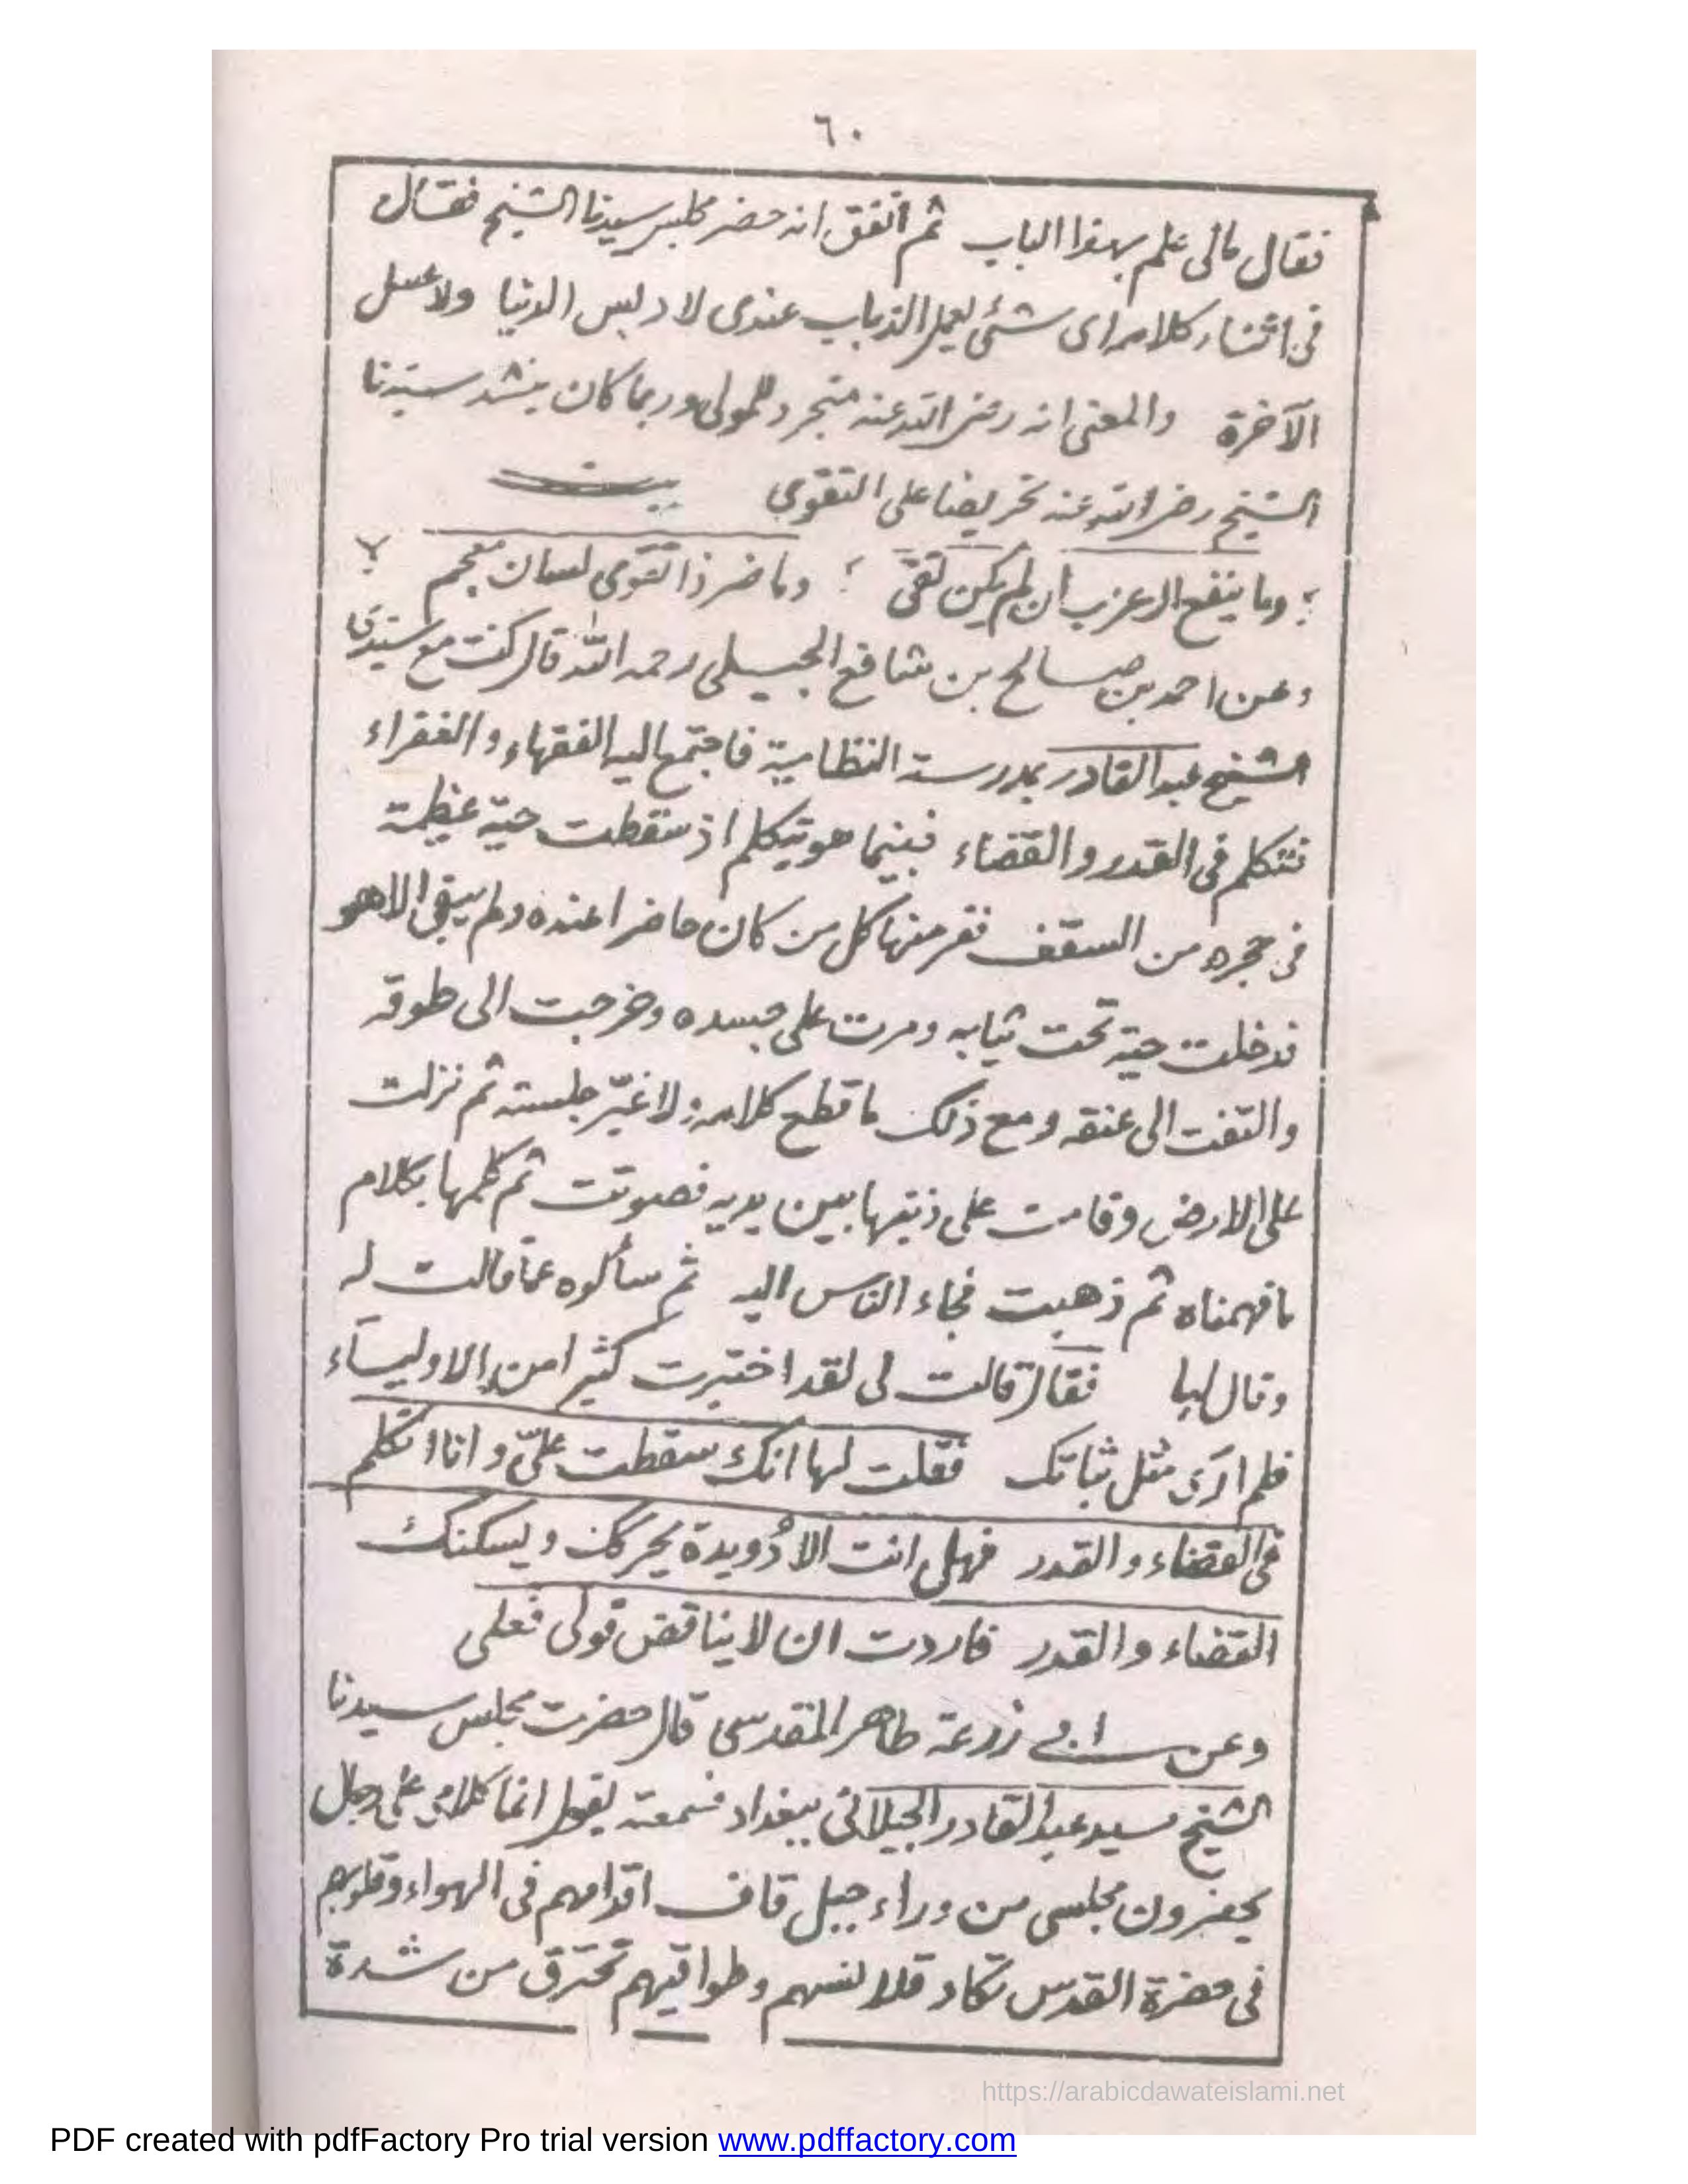 ٦٠
فقال مالى علم بهذا الباب ثم اتفق انه حضر مجلس سيدنا الشيخ فقال
فى اثناء كلامه اى شئى يعمل الذباب عندى لا دبس الدنيا ولا عسل
الآخرة والمعنى انه رضى الله عنه متجرد للمولى وربما كان ينشد سيدنا
الشيخ رضى الله عنه تحريضا على التقوى بيت
؛ وما ينفع الاعرب ان لم يكن تقى ؛ وما ضر ذا تقوى لسان معجم ؛
وعن احمد بن صالح بن شافع الجيلى رحمه الله قال كنت مع سيدى
الشيخ عبد القادر بمدرسة النظامية فاجتمع اليه الفقهاء والفقراء
نتكلم فى القدر والقضاء فبينما هو يتكلم اذ سقطت حية عظيمة
فى حجره من السقف ففر منها كل من كان حاضرا عنده ولم يبق الا هو
فدخلت حية تحت ثيابه ومرت على جسده وخرجت الى طوقه
والتفت الى عنقه ومع ذلك ما قطع كلامه ولا غير جلسته ثم نزلت
على الارض وقامت على ذنبها بين يديه فصوتت ثم كلمها بكلام
ما فهمناه ثم ذهبت فجاء الناس اليه ثم سألوه عما قالت له
وقال لها فقال قالت لى لقد اختبرت كثيرا من الاولياء
فلم ارى مثل ثباتك فقلت لها انك سقطت علىّ وانا اتكلم
فى القضاء والقدر فهل انت الا دُويدة يحركك ويسكنك
القضاء والقدر فاردت ان لا يناقض قولى فعلى
وعن ابى زرعة طاهر المقدسى قال حضرت مجلس سيدنا
الشيخ سيد عبد القادر الجيلانى ببغداد فسمعته يقول انما كلامى على رجال
يحضرون مجلسى من وراء جبل قاف اقدامهم فى الهواء وقلوبهم
فى حضرة القدس تكاد قلانسهم وطواقيهم تحترق من شدة
https://arabicdawateislami.net
PDF created with pdfFactory Pro trial version www.pdffactory.com